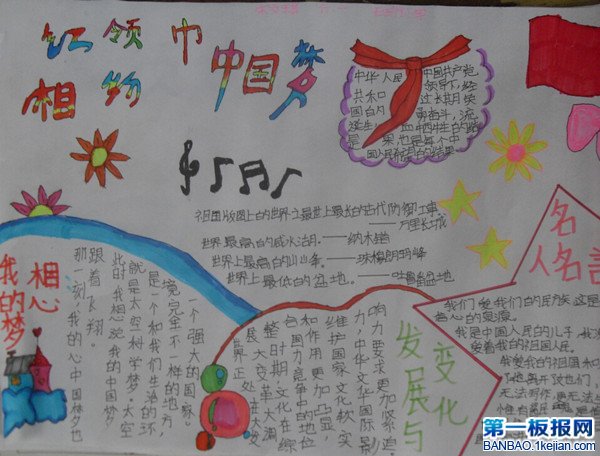 红领巾
相约
中国梦
中华人民
共和
国的
中国共产党
领导下,经
过长期
祖国版图上的世界之最世上最长的古代防御工事。
——万里长城
世界最高的咸水湖。——纳木错
世界上最高的山峰。——珠穆朗玛峰
世界上最低的盆地。——吐鲁番盆地
名人名言
我们爱我们的民族,这是
自信心的泉源。
我是中国人民的儿子,我
爱着我的祖国人民。
我爱我的祖国和
离开他们,
无法
相心
我的梦
一个强大的国家。
境完全不一样的地方,
是一个和我们生活的环
就是太空树学梦。太空
此时我相心说我的中国梦
跟着飞翔。
那一刻,我的心中国梦也
变化
发展与
响力要求更加紧迫。
力,中华文华国际影
维护国家文化软实
和作用更加凸显
合国力竞争中的地位
整时期文化在综
展大变革大调
世界正处在大发
第一板报网
BANBAO.1kejian.com